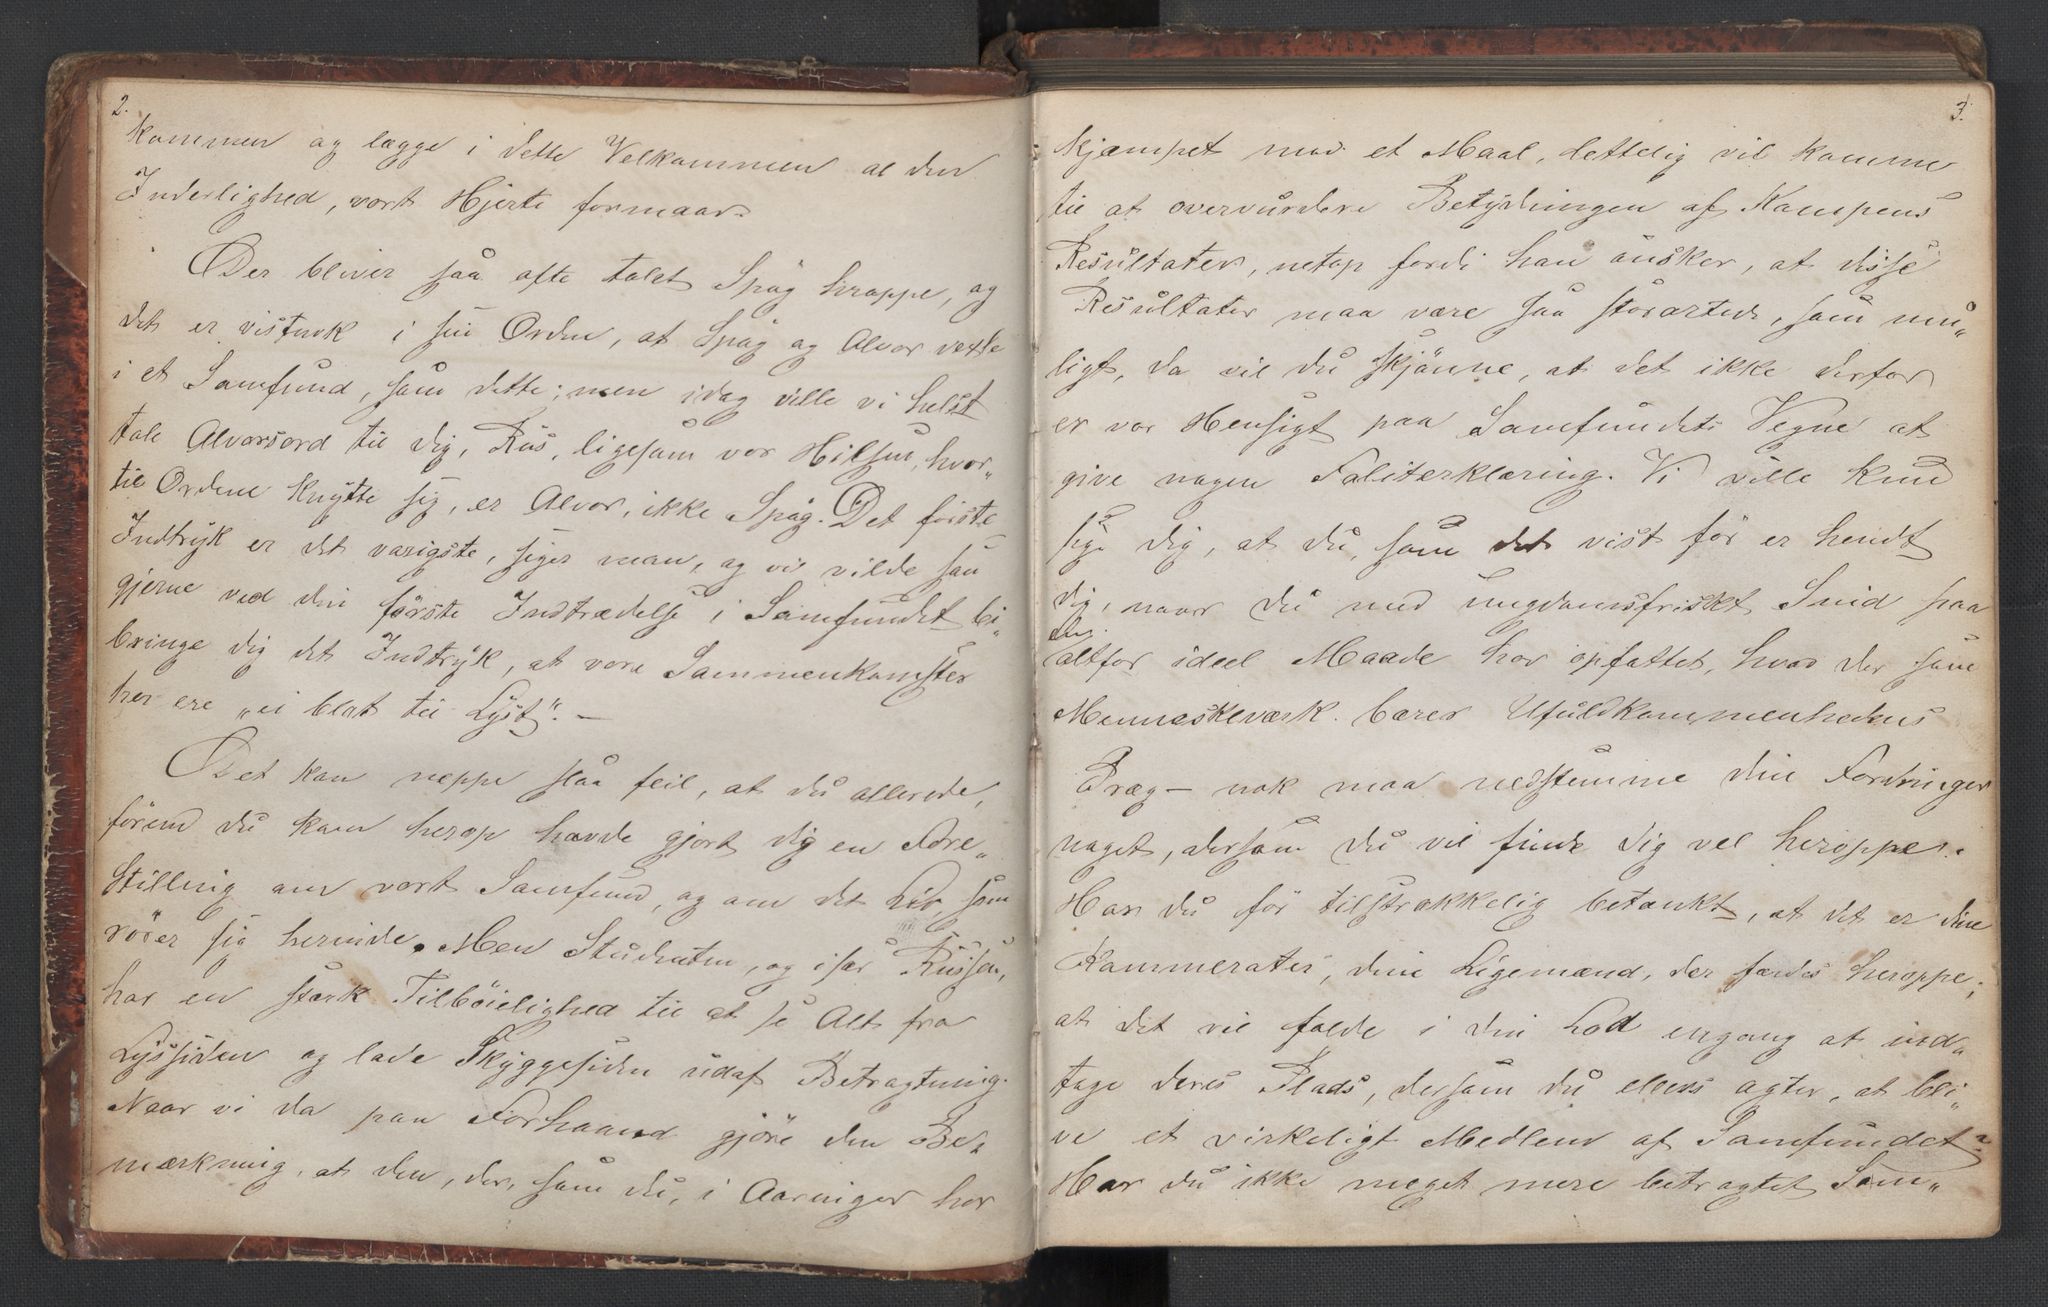 2.
kommen og lægge i dette Velkommen al den
Inderlighed, vort Hjerte formaar.
Der bliver saa ofte talet Spøg heroppe, og
det er vistnok i sin Orden, at Spøg og Alvor vexle
i et Samfund, som dette; men idag ville vi helst
tale Alvorsord til dig, Rus, ligesom vor Hilsen, hvor„
til Ordene knytte sig, er Alvor, ikke Spøg. Det første
Indtryk er det varigste, siger man, og vi vilde saa
gjerne ved din første Indtrædelse i Samfundet bi„
bringe dig det Indtryk, at vore Sammenkomster
her ere „ei blot til Lyst“. –
Det kan neppe slaa feil, at du allerede,
førend du kom herop havde gjort dig en Fore„
stilling om vort Samfund, og om det Liv, som
rører sig herinde. Men Studenten, og især Russen,
har en stærk Tilbøielighed til at se Alt fra
Lyssiden og lade Skyggesiden udaf Betragtning.
Naar vi da paa Forhaand gjøre den Be„
mærkning, at den, der, som du, i Aaringer har
3.
kjæmpet mod et Maal, lettelig vil komme
til at overvurdere Betydningen af Kampens
Resultater, netop fordi han ønsker, at disse
Resultater maa være saa storartede, som mu„
ligt, da vil du skjønne, at det ikke derfor
er vor Hensigt paa Samfundets Vegne at
give nogen Faliterklæring. Vi ville kun
sige dig, at du, som det vist før er hendt
dig, naar du med ungdomsfriskt Sind paa
altfor ideel Maade har opfattet, hvad der som
Menneskeværk bærer Ufuldkommenhedens
Præg – nok maa nedstemme dine Fordringer
noget, dersom du vil finde dig vel heroppe.
Har du før tilstrækkelig betænkt, at det er dine
Kammerater, dine Ligemænd, der færdes heroppe;
at det vil falde i din Lod engang at ind„
tage deres Plads, dersom du ellers agter, at bli„
ve et virkeligt Medlem af Samfundet?
Har du ikke meget mere betragtet Sam„